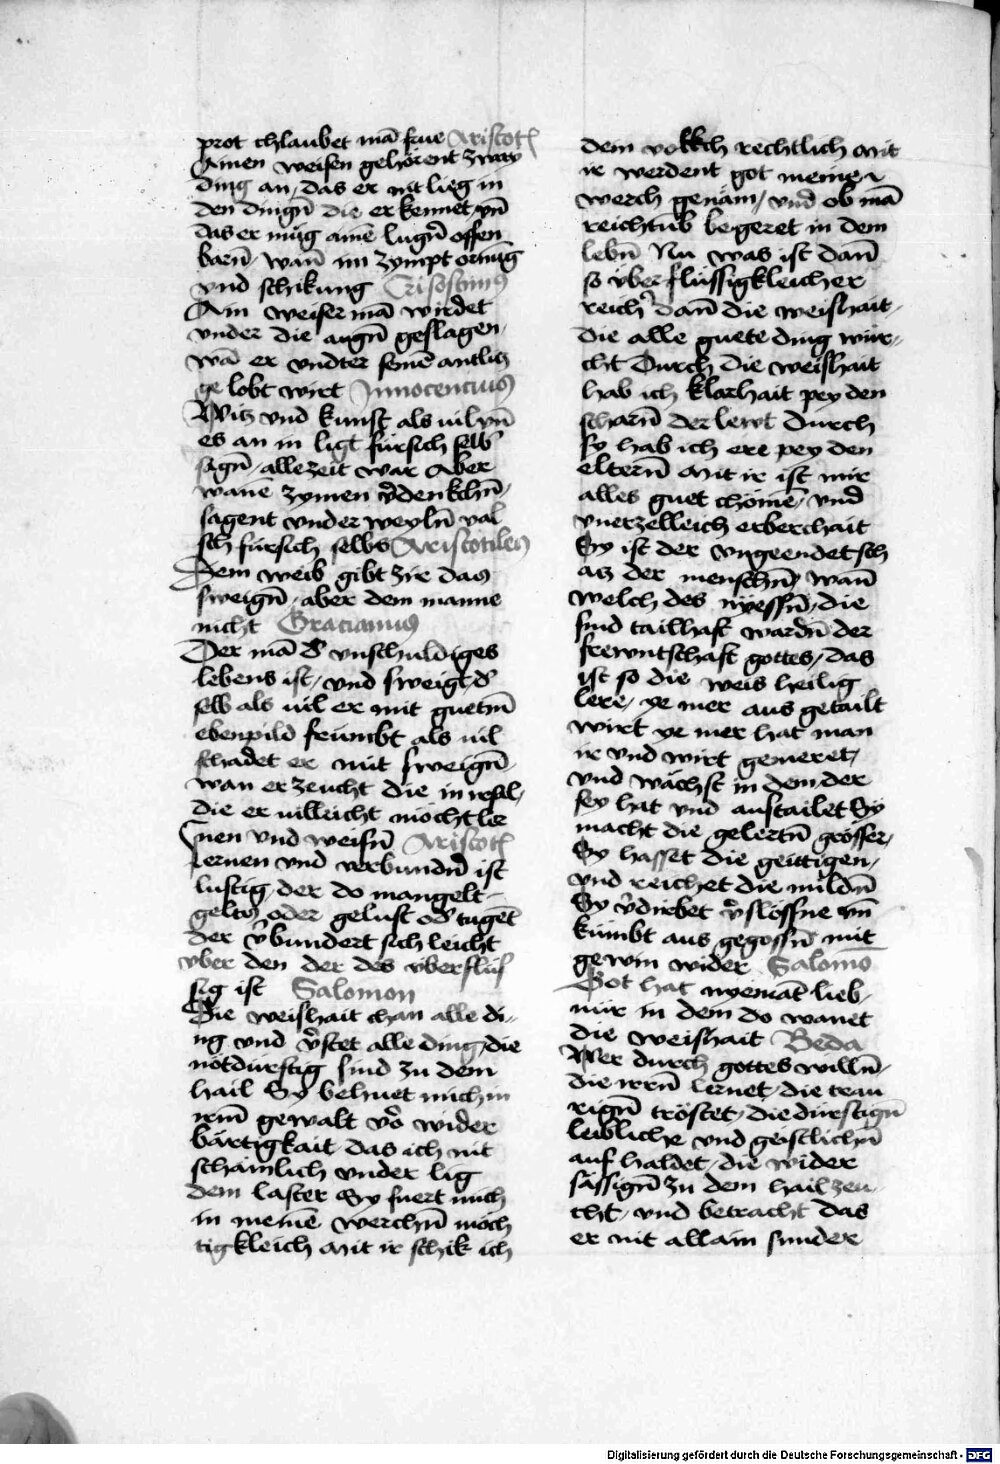 prot chlaubet mā frue Aristotl
Ainen weisen gehörent zway
ding an / das er nit lieg in
den dingn̄ die er kennet / vn̄
das er mug ainē lugn̄r offen
barn̄ / wan̄ im zympt ornūg
vnd schikung Crisostimus
Ain weiser mā wirdet
vnder die augn̄ geslagen /
wā er vndter seinē antlitz
ge lobt wirt Innocencius
Witz vnd kunst als uil vn̄
es an in ligt fürsich selbs
sagn̄ / allezeit war Aber
wanē zymen v̄denkchn̄ /
sagent vnder weyln̄ val
sch fürsich selbs Aristotiles
Dem weib gibt zir das
sweign̄ / aber dem manne
nicht Gracianus
Der mā ds vnschuldiges
lebens ist / vnd sweigt / ds
selb als uil er mit guetm̄
ebenpild frumbt als uil
schadet er mit sweign̄ /
wan er zeucht die in
die er uilleicht möcht ler
nen vnd weisn̄ Aristotl
Lernen vnd verbundn̄ ist
lustig / der do mangelt
geltz oder gelust ods tugēt
der v̄bundert sich leicht
vber den der des vberflus
sig ist Salomon
Die weishait chan alle di-
ng vnd v̄stet alle ding / die
notdurftig sind zu dem
hail Sy behuet mich in
irm̄ gewalt vō wider
bärtigkait das ich nit
schamlich vnder lig
dem laster Sy fuert mich
in meinē werchn̄ mäch
tigkleich Mit ir schik ich
dem volkch rechtlich Mit
ir werdent got meine
werch genäm / vnd ob mā
reichtūb begeret in dem
lebn̄ Nu was ist dan̄
so vberflüssigkleicher
reichs dan̄ die weishait /
die alle guete ding wür-
cht Durch die weishait
hab ich klarhait pey den
scharn̄ der lewt Durch
sy hab ich ere pey den
eltern̄ Mit ir ist mir
alles guet chömē / vnd
vnerzelleich erberchait
Sy ist der vngeendet sch
atz der menschn̄ / wan̄
welch des nyessn̄ / die
sind tailhaft wardn̄ der
frewntschaft gottes / das
ist so die weis heilig
lere / ye mer aus getailt
wirt ye mer hat man
ir vnd wirt gemeret /
vnd wächst in dem der
sey hat vnd austailet Sy
macht die gelertn̄ grösser /
Sy hasset die geittigen /
vnd reichet die mildn̄
Sy v̄dirbet v̄slossne vn̄
kümbt aus gegossn̄ mit
gewin wider Salomō
Got hat nyemāt lieb /
nür in dem do wanet
die weishait Beda
Wer durch gottes willn̄ /
die irrn̄ lernet / die trau
rign̄ tröstet / die dürstign̄
leibliche vnd geistlichn̄
auf haldet / die wider
sässign̄ zu dem hail zeu-
cht / vnd betracht das
er nit allain sunder
Digitalisierung gefördert durch die Deutsche Forschungsgemeinschaft - DFG